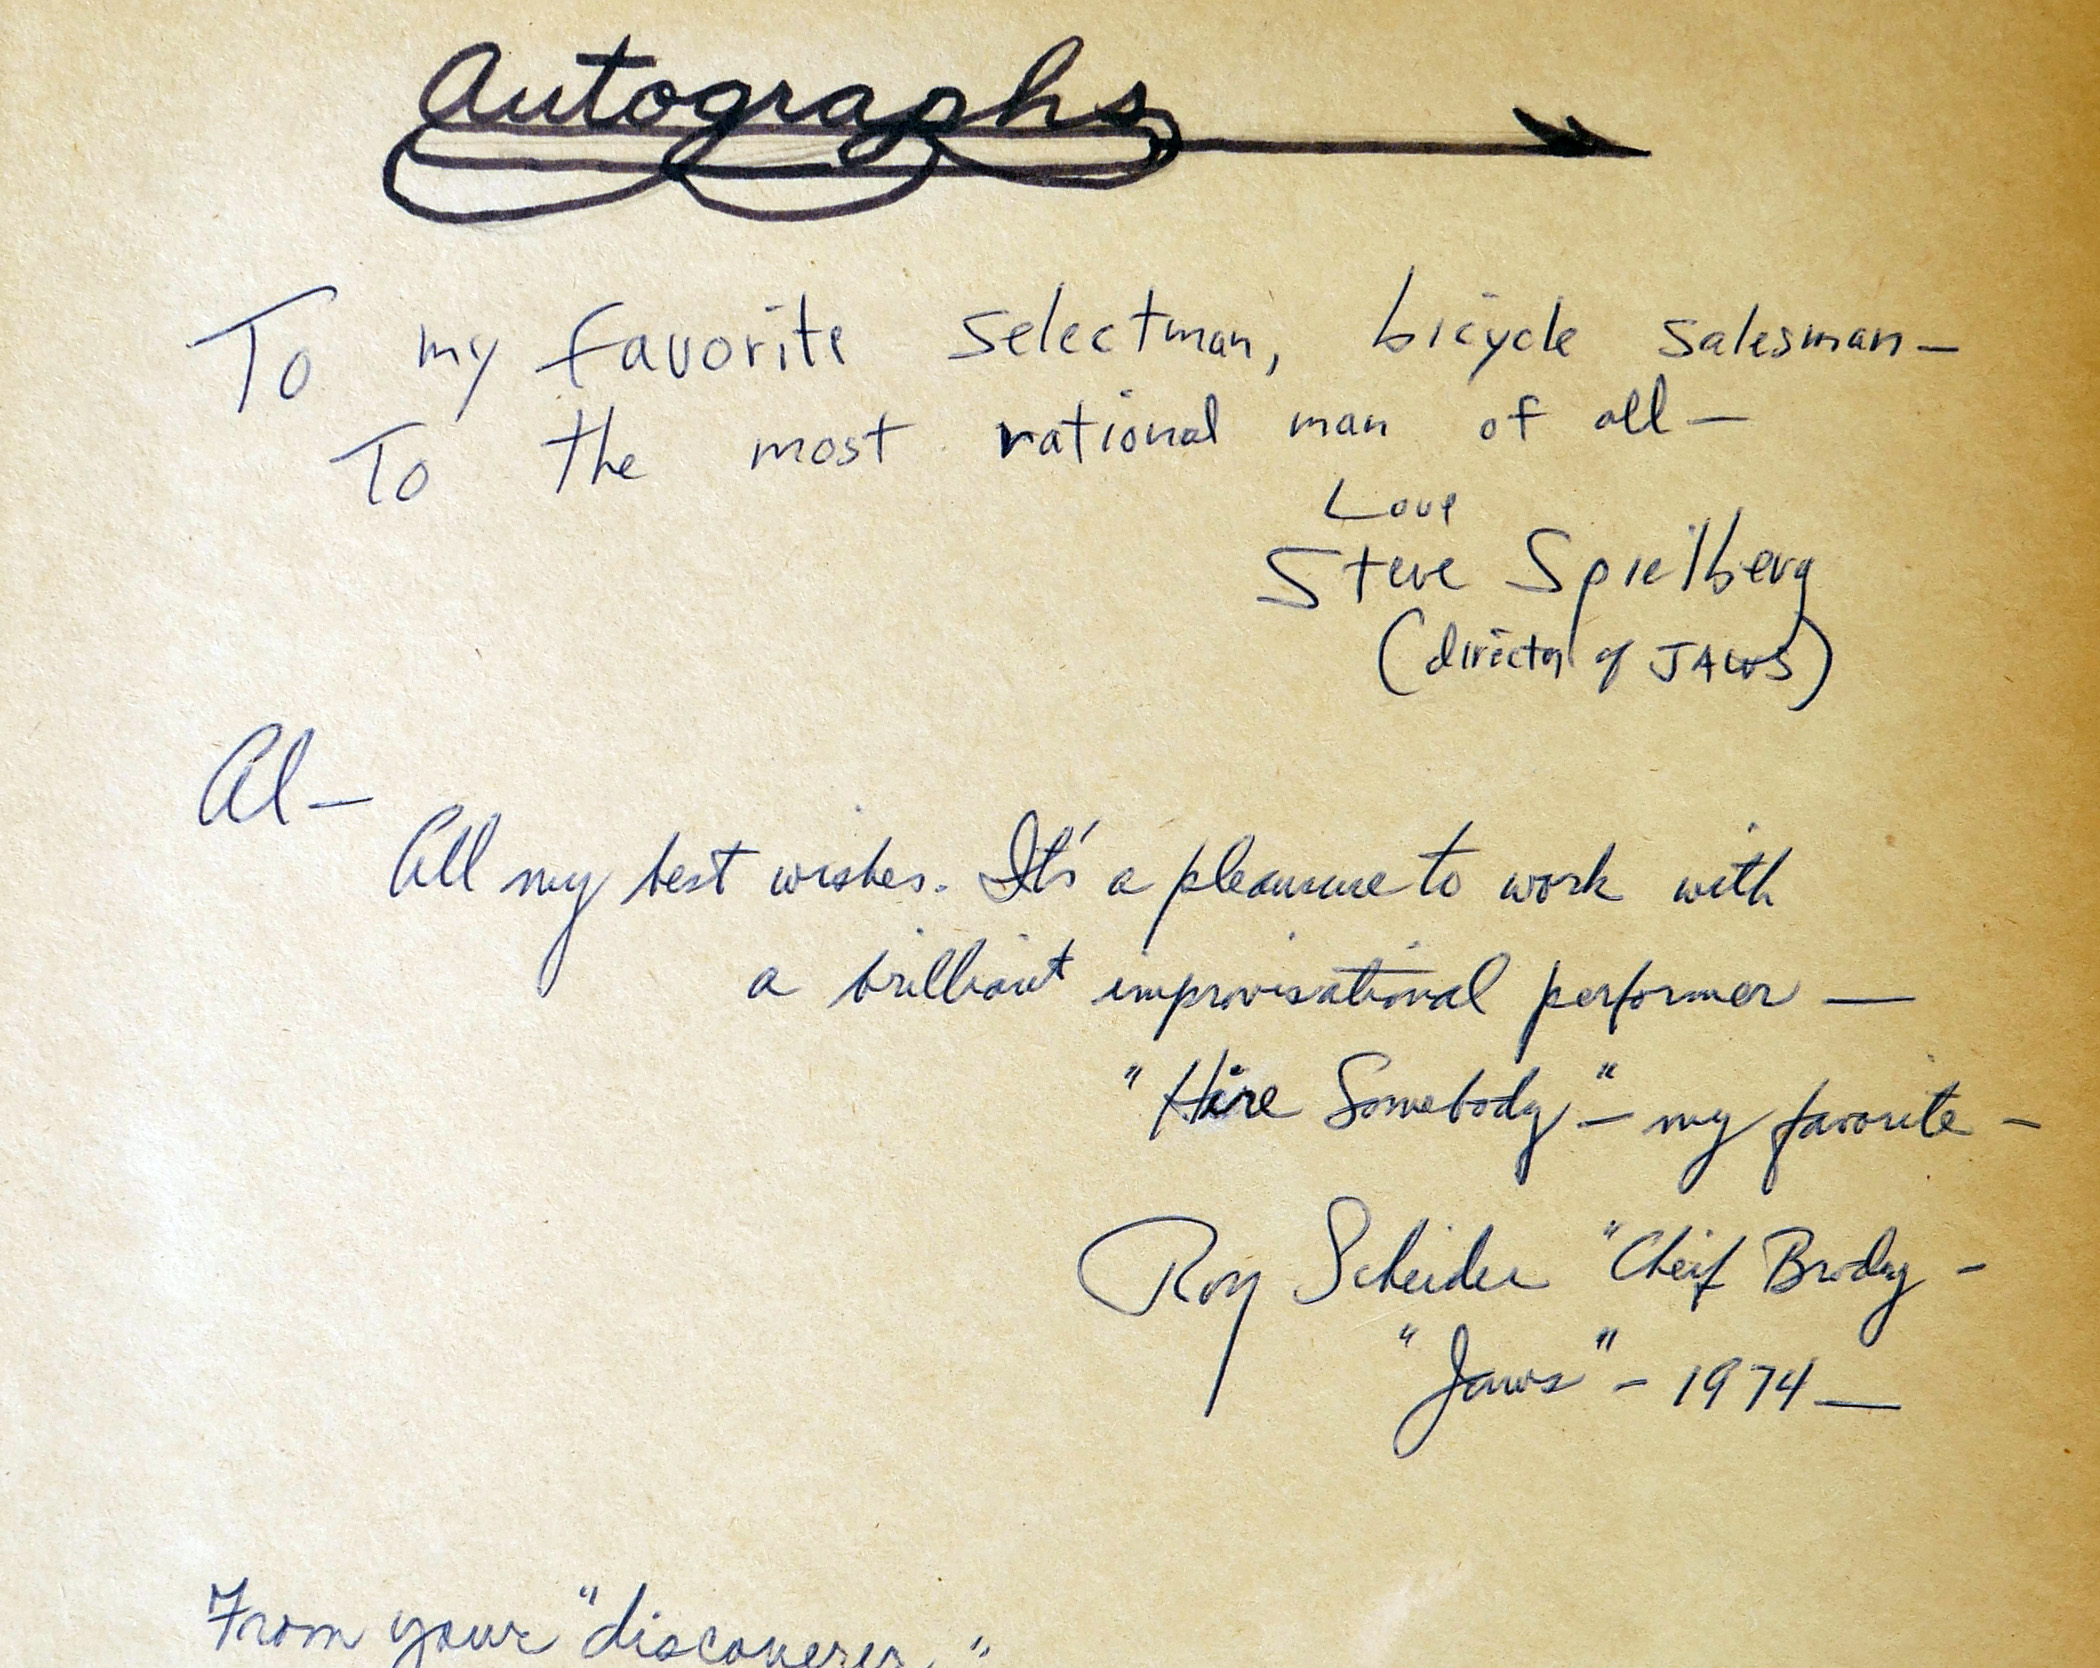 Autographs
To my favorite selectman, bicycle salesman—
To the most rational man of all—
Love
Steve Spielberg
(director of JAWS)
Al—
All my best wishes. It's a pleasure to work with
a brilliant improvisational performer —
"Hire Somebody" — my favorite —
Roy Scheider "Cheif Brody —
"Jaws" — 1974 —
From your "discoverer,"